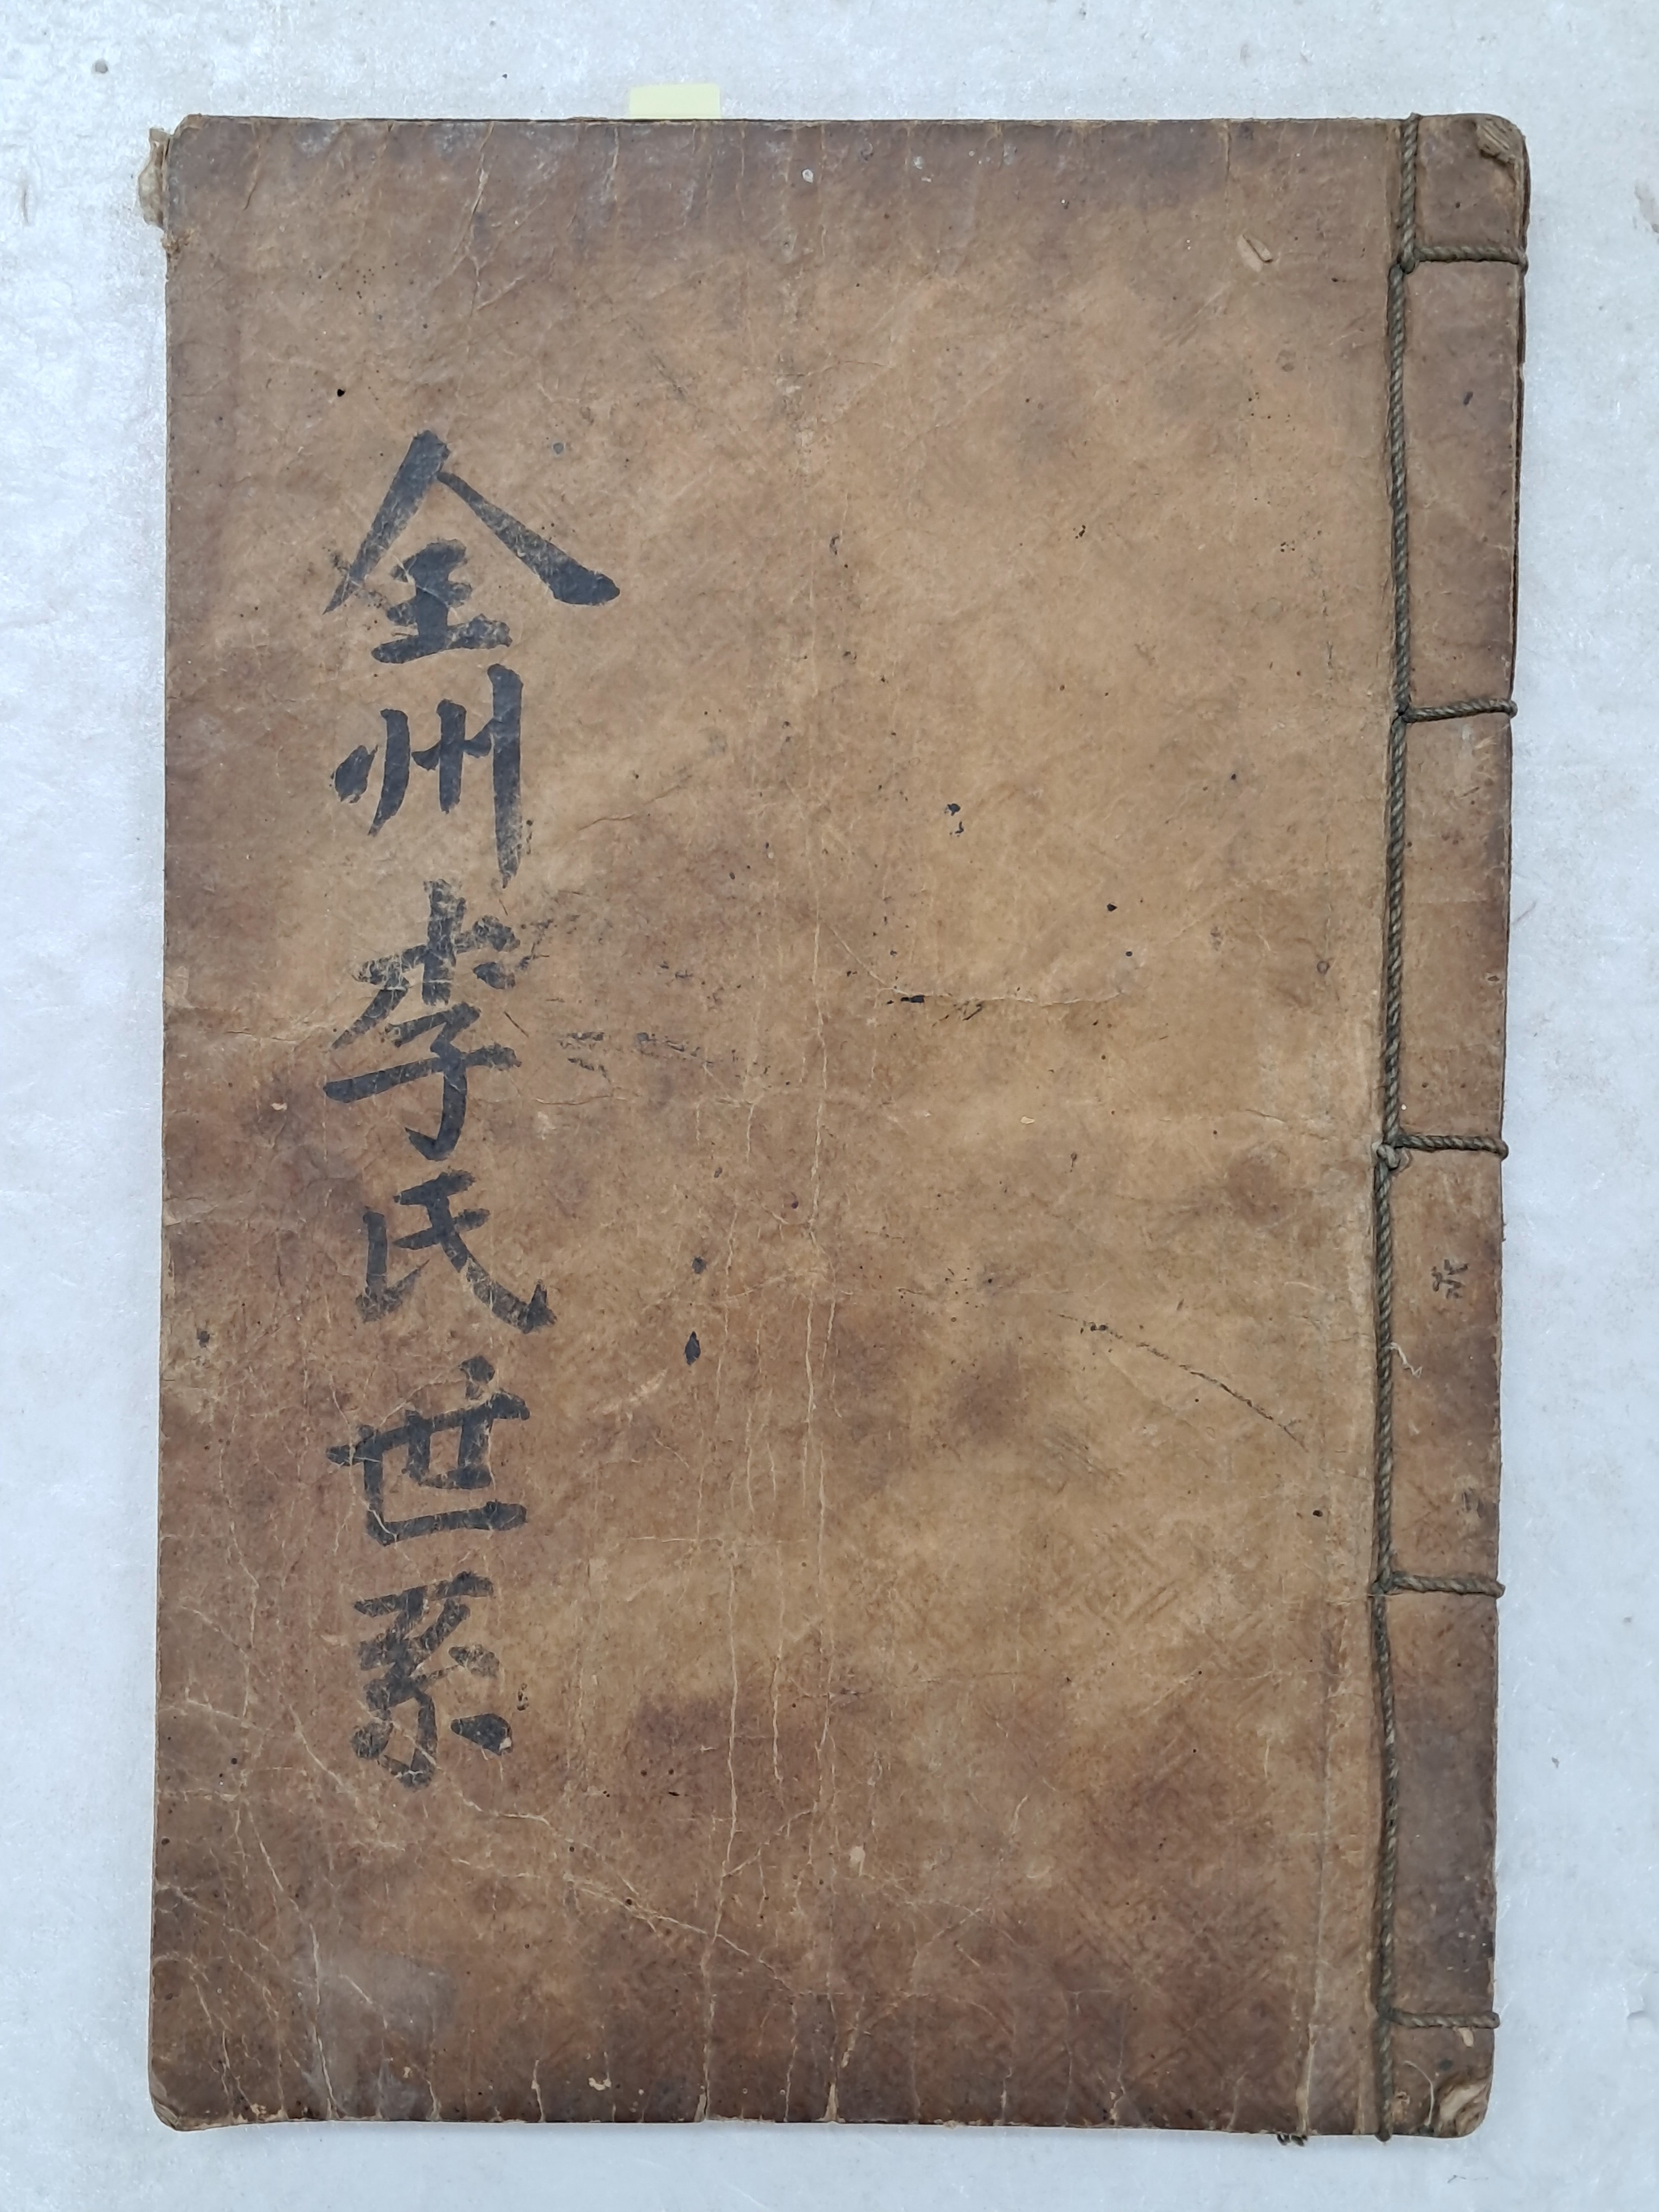 全州李氏世系